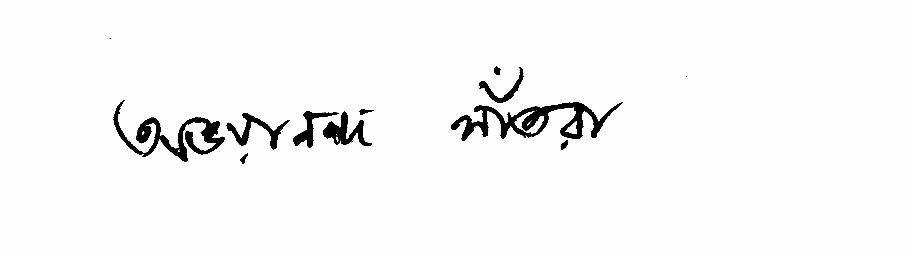 অভয়ানন্দ সাঁতরা